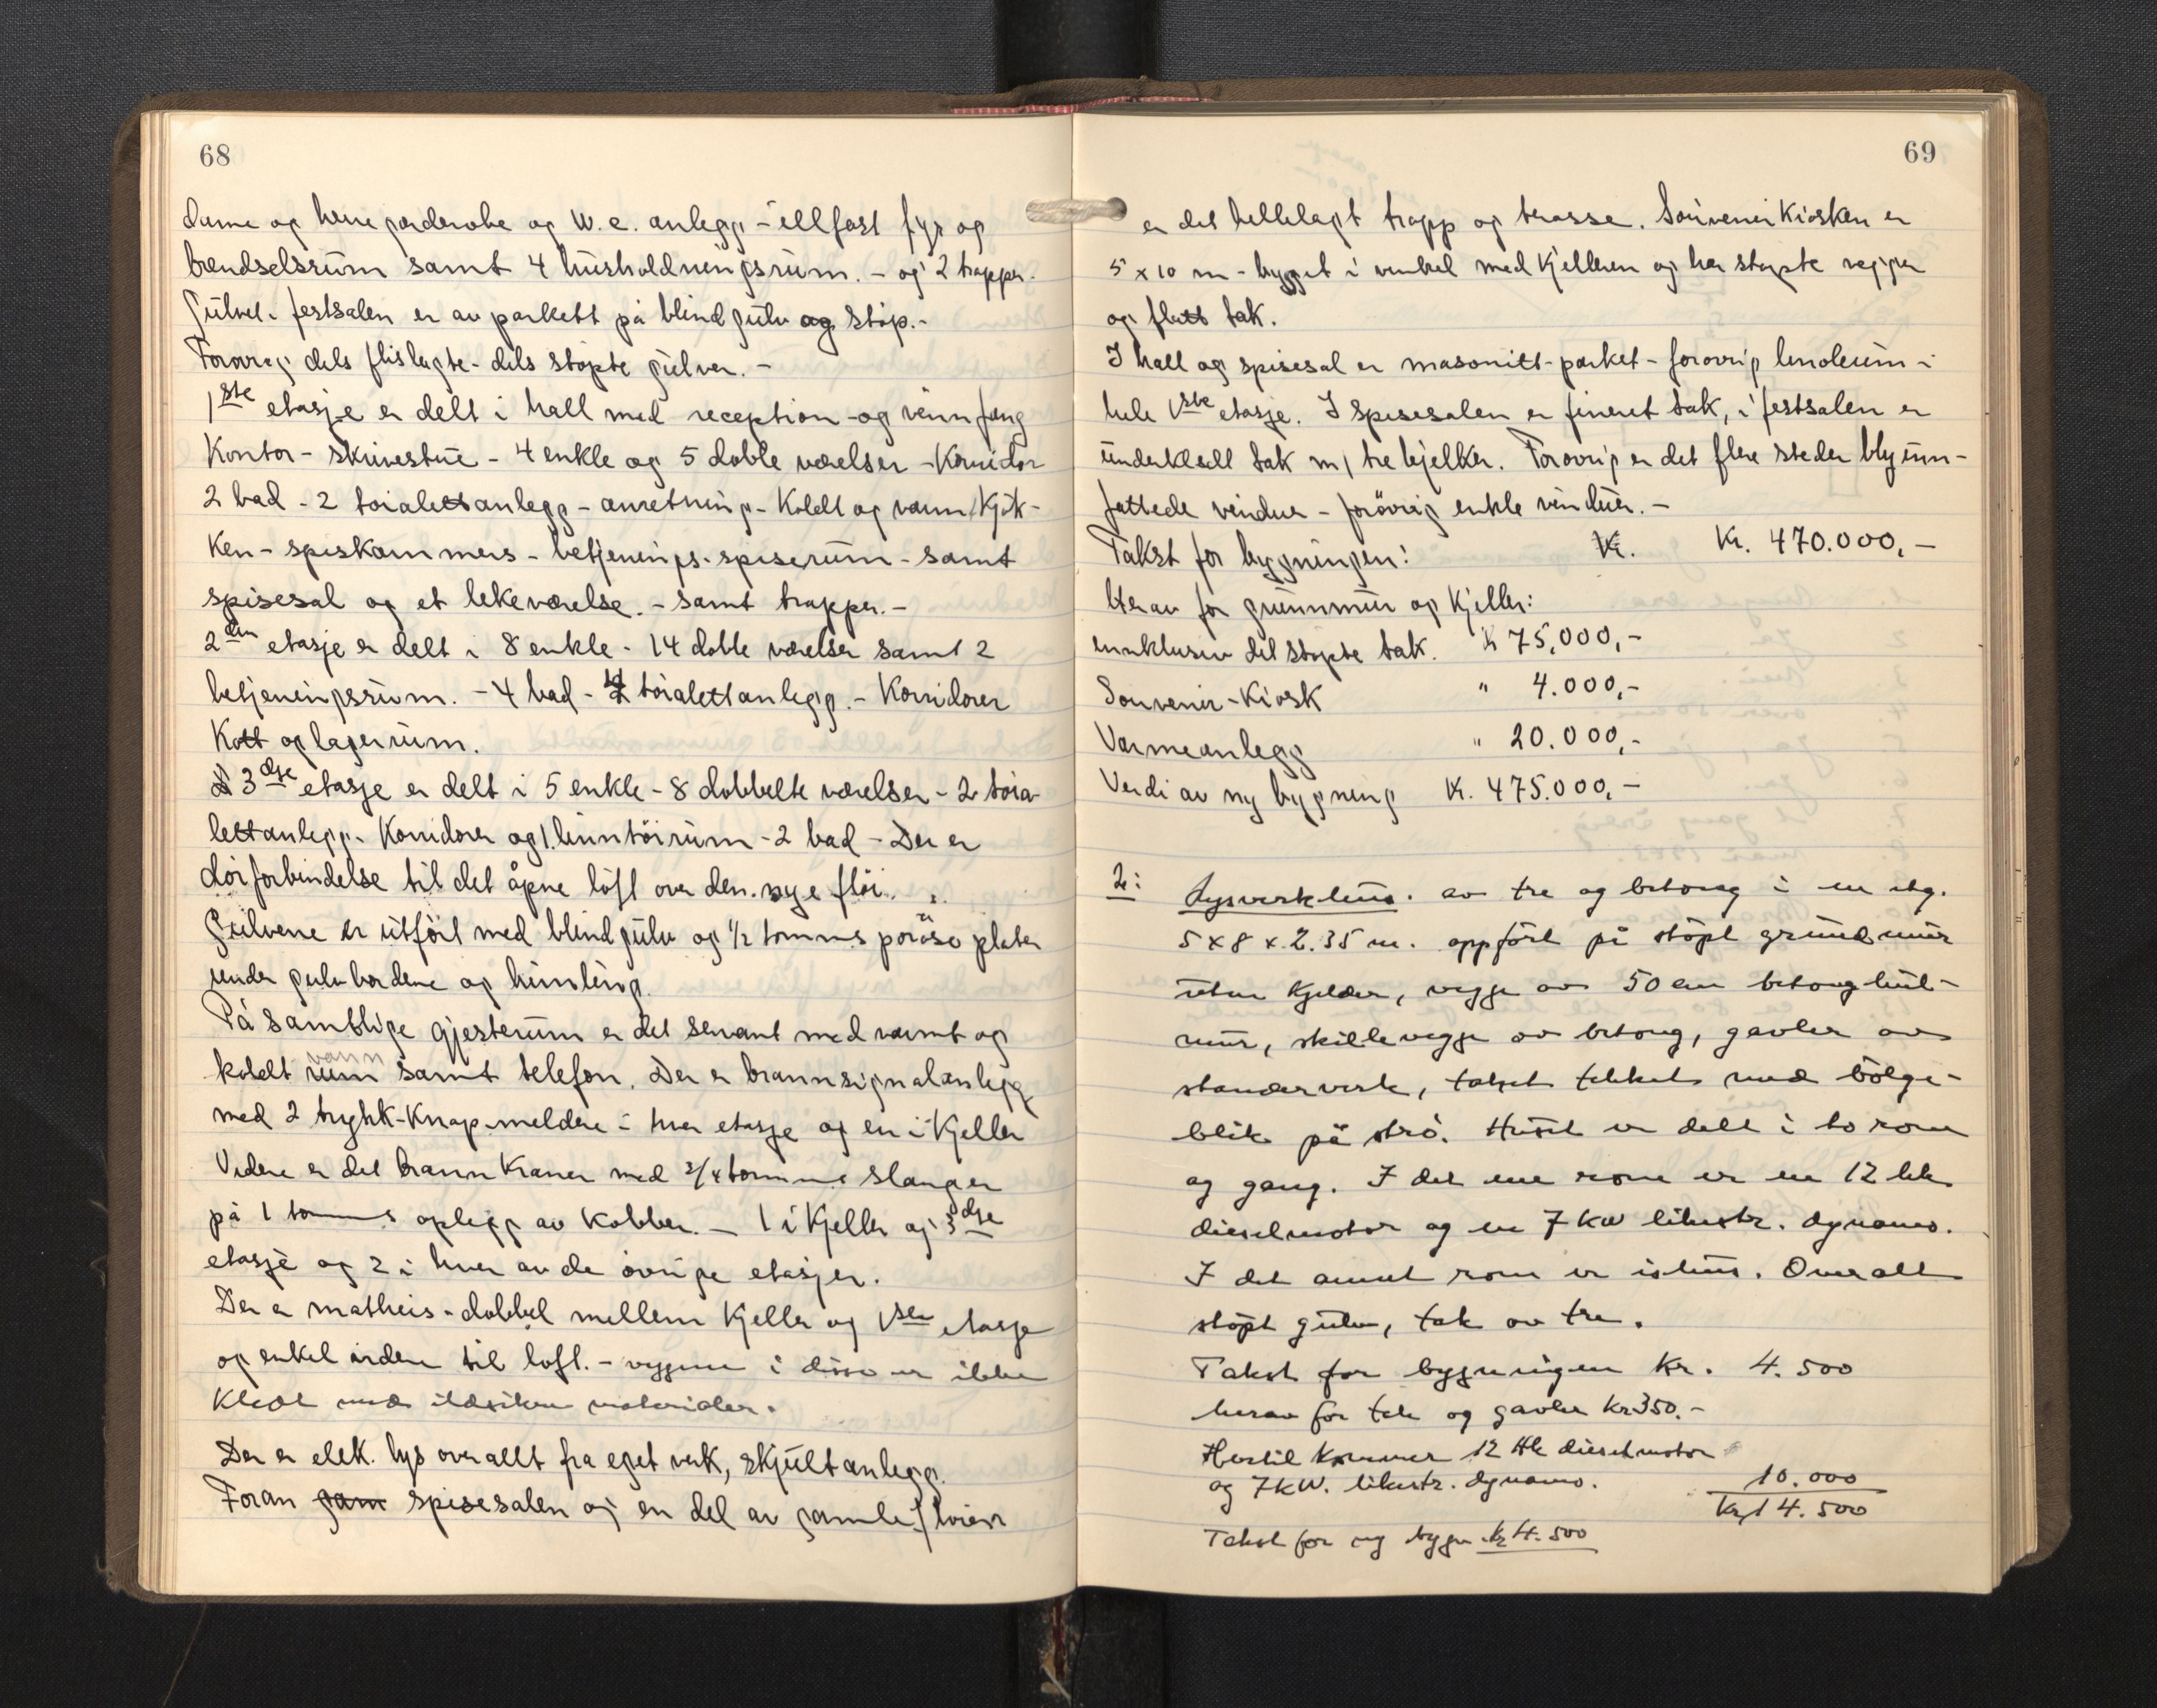 68
Dame og herre garderobe og W.c. anlegg - illfast fyr og
brendselsrum samt 4 husholdningsrum. - og 2 trapper.
Gulvet i festsalen er av parkett på blindgulv og støp.-
Forøvrig dels flislagte - dels støpte gulver. -
1ste etasje er delt i hall med reception - og vinnfang
Kontor - skrivestue - 4 enkle og 5 doble værelser - Korridor
2 bad - 2 toialettanlegg - anretning - Koldt og varm Kjøk-
ken - spiskammers - betjenings-spiserum - samt
spisesal og et lekeværelse. - samt trapper. -
2den etasje er delt i 8 enkle - 14 doble værelser samt 2
betjeningsrum. - 4 bad - 4 toialettanlegg. - Korridorer
Kott og lagerrum.
3dje etasje er delt i 5 enkle - 8 dobbelte værelser - 2 toia-
lettanlegg - Korridorer og 1 linntöirum - 2 bad - Der er
dörforbindelse til det åpne löft over den nye flöi.
Gulvene er utfört med blindgulv og 1/2 tomms poröse plater
under gulvbordene og himling.
På samtlige gjesterum er det servant med varmt og
koldt vann samt telefon. Der er brannsignalanlegg
med 2 trykk-Knap-meldere i hver etasje og en i Kjeller
Videre er det brannkraner med 3/4 tomme slanger
på 1 tomms oplegg av Kobber. - 1 i Kjeller og 3dje
etasje og 2 i hver av de øvrige etasjer.
Der er matheis - dobbel mellem Kjeller og 1ste etasje
og enkel videre til loft. - veggene i disse er ikke
Kledt med ildsikre materialer.
Der er elek. lys overallt fra eget verk, skjult anlegg.
Foran gam spisesalen og en del av gamle fløien
69
er det hellelagt trapp og terasse. Souvenir Kiosken er
5 x 10 m - bygget i vinkel med Kjelleren og har støpte vegger
og flatt tak.
I hall og spisesal er masonitt-parket - forøvrig linoleum i
hele 1ste etasje. I spisesalen er fineret tak, i festsalen er
underkledt tak m/ tre bjelker. Forøvrig er det flere steder blyinn-
fattede vinduer - forøvrig enkle vinduer. -
Takst for bygningen: Kr. Kr. 470.000,-
Herav for grunnmur og Kjeller:
innklusiv det støpte tak. Kr 75,000,-
Souvenir-Kiosk " 4.000,-
Varmeanlegg " 20.000,-
Verdi av ny bygning Kr. 475.000,-
2: Lysverkhus. av tre og betong i en etg.
5 x 8 x 2.35 m. oppfört på støpt grundmur
uten Kjelder, vegger av 50 cm betonghul-
mur, skillevegge av betong, gavler av
standerverk, taket tekket med bölge-
blik på strö. Huset er delt i to rom
og gang. I det ene rom er en 12 hk
dieselmotor og en 7 kw likestr. dynamo.
I det annet rom er ishus. Overalt
støpt gulv, tak av tre.
Takst for bygningen Kr. 4.500
herav for tak og gavler Kr 350.-
Hertil kommer 12 Hk dieselmotor
og 7 kW. likestr. dynamo. 10.000
Kr 14.500
Takst for ny bygn Kr 4.500